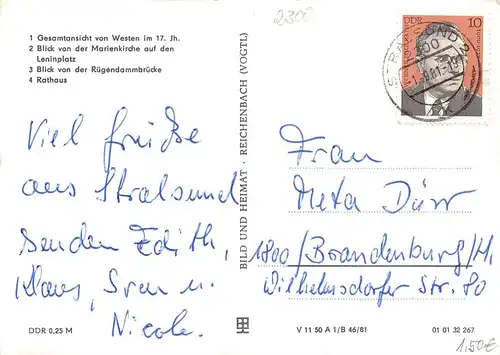 2300
1 Gesamtansicht von Westen im 17. Jh.
2 Blick von der Marienkirche auf den
Leninplatz
3 Blick von der Rügendammbrücke
4 Rathaus
Viel Grüße
aus Stralsund
senden Edith,
Klaus, Sven u.
Nicole.
DDR 0,25 M
BILD UND HEIMAT · REICHENBACH (VOGTL)
DDR 10
STRALSUND 2
Frau
Meta Dürr
1800/Brandenburg/H.
Wilhelmsdorfer Str. 80
V 11 50 A 1/B 46/81
01 01 32 267
1,50€